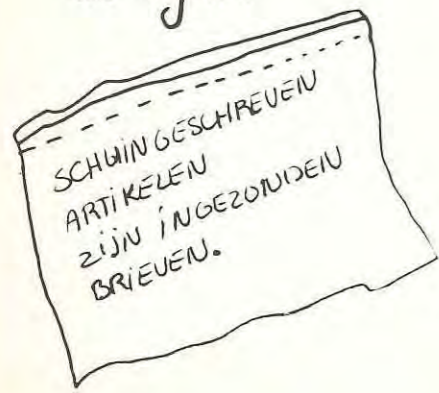 SCHUINGESCHREVEN
ARTIKELEN
ZIJN INGEZONDEN
BRIEVEN.